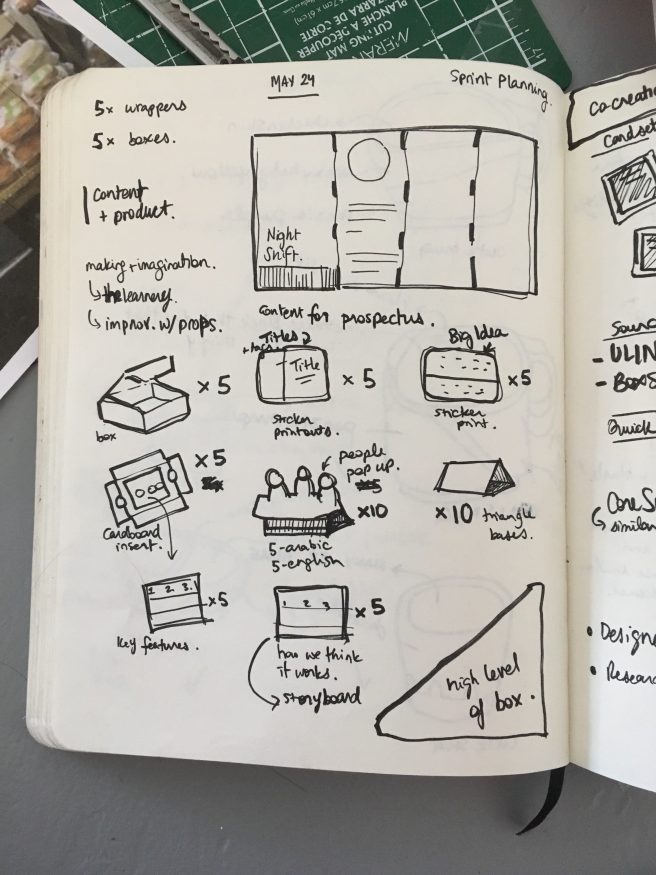 CUTTING MAT
PLANCHE À DÉCOUPER
BARRA DE CORTE
MAY 24
Sprint Planning.
5x wrappers
5x boxes.
Content
+ product.
making + imagination.
improv. w/props.
Night
Shift.
Content for prospectus.
Titles 2
Title
x 5
sticker
printouts.
Big Idea
x 5
sticker
print.
x 5
box
x 5
Cardboard
insert.
people
pop up.
x10
5-arabic
5-english
x 10 triangle
bases.
1. 2. 3.
x 5
Key features.
1 2 3
x 5
how we think
it works.
storyboard
high level
of box.
Co-creatio
Card set
Sourc
- ULIN
- BOXS
Quick
Core S
similar
• Design
• Resear